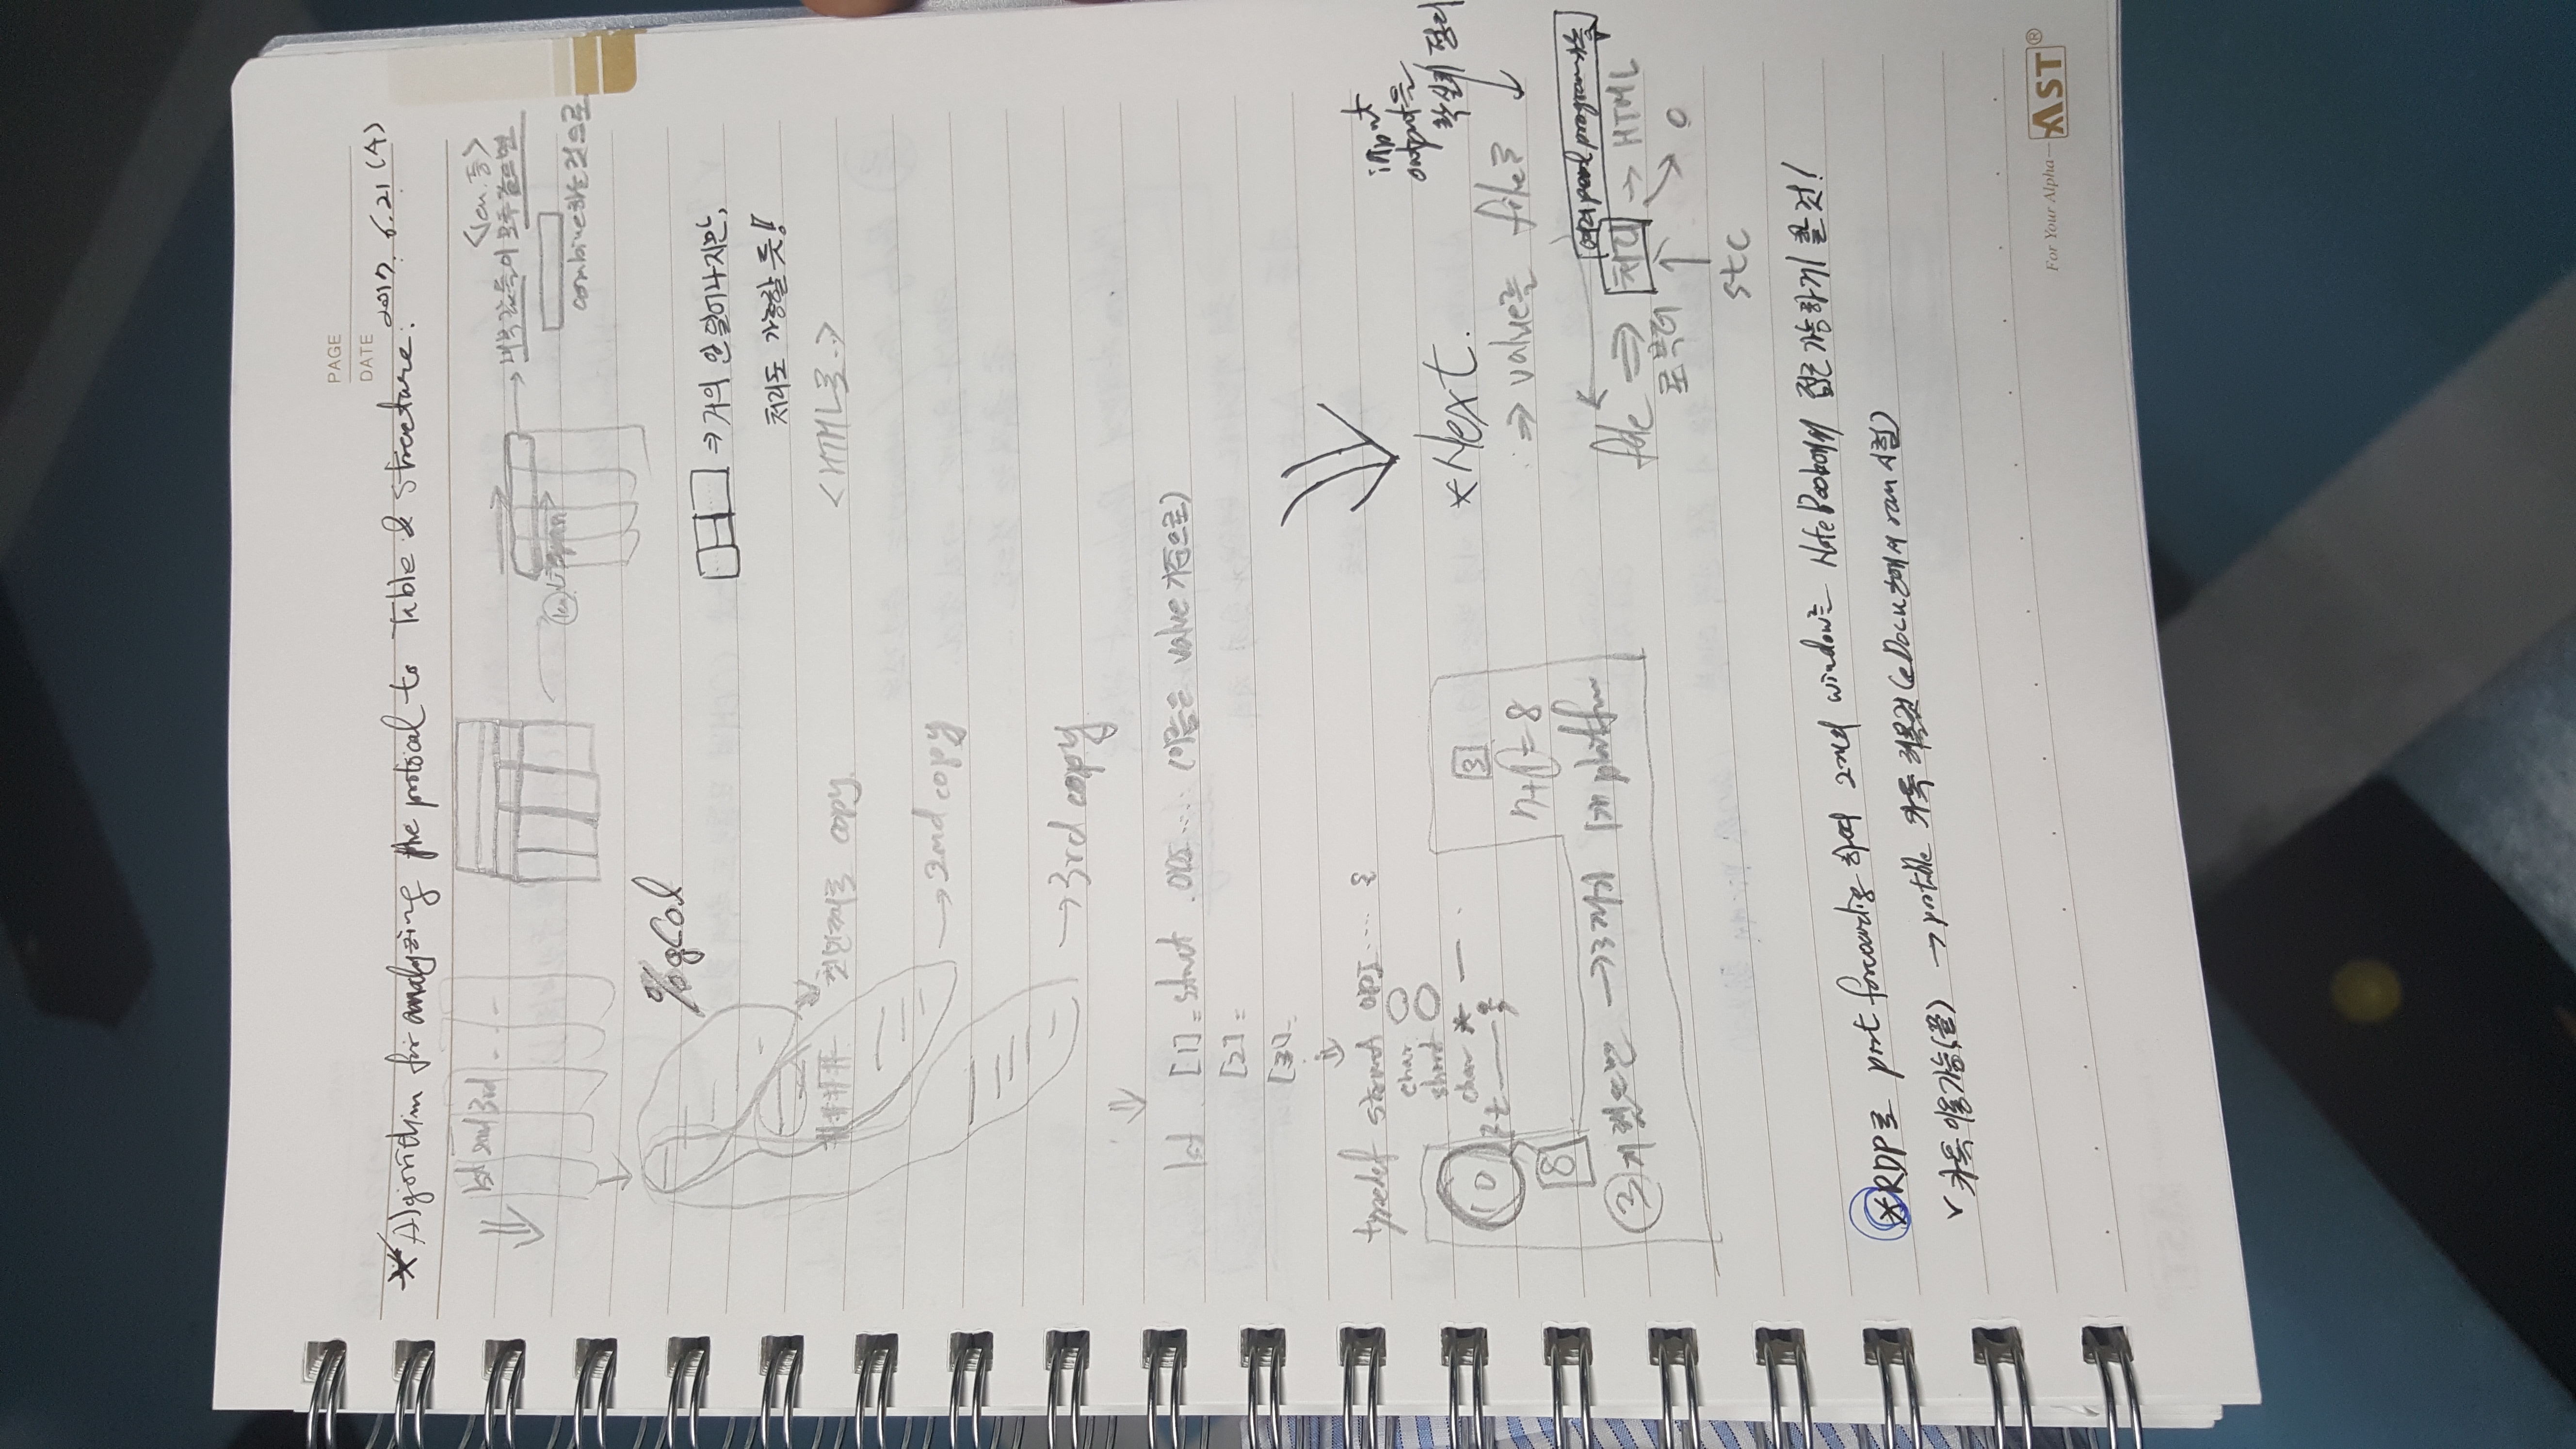 PAGE
DATE 2017. 6. 21 (수)
* Algorithm for analyzing the protocol to Table & Structure.
1st 2nd 3rd
<len. 등>
내부 값들이 모두 같으면
len span
combine하는 것으로
%gCol
⇒ 거의 안 일어나지만,
처리도 가능할 듯!!
<HTML로..>
#### 첫번째로 copy.
→ 2nd copy
→ 3rd copy
1st [1] = struct . ODI .... (이름은 value 기준으로)
[2] =
[3] =
typedef struct ODI .... {
char
short
char *
10
8
3
7+1=8
→ 3개씩 1개 platform
input
output을
확실히 정리
*Next.
⇒ value를 file로
여러 perl program 가능
file ⇒ 처리 → HTML
로부터
stc
* RDP로 port forwarding 하여 2개의 window를 NoteBook에서 접근 가능하게 할 것!
v 카톡 이용가능(끝) → portable 카톡 해볼것 (eDocu 등에서 ran 시험)
For Your Alpha— AST®